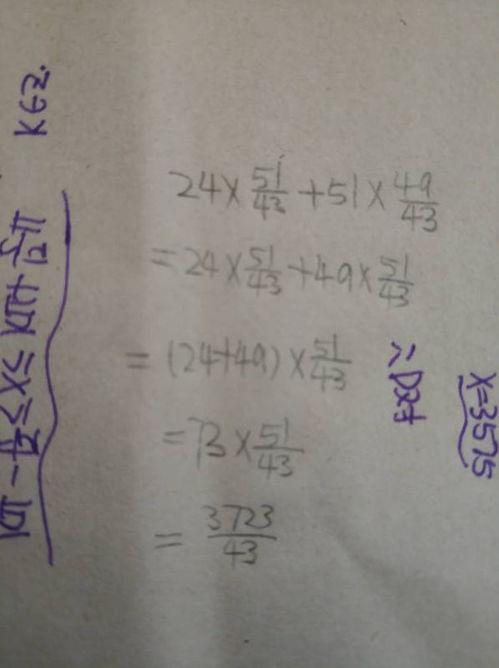 24×51/43+51×49/43
=24×51/43+49×51/43
=(24+49)×51/43
=73×51/43
=3723/43
kπ-π/12≤x≤kπ+5/12π k∈Z.
x=3575